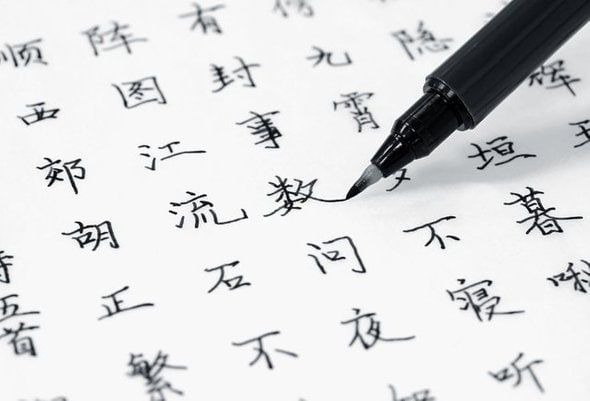 辉
隐垣暮啾
九霄不寝听
有封事数问夜
阵图江流石不
顺西郊胡正繁
五首